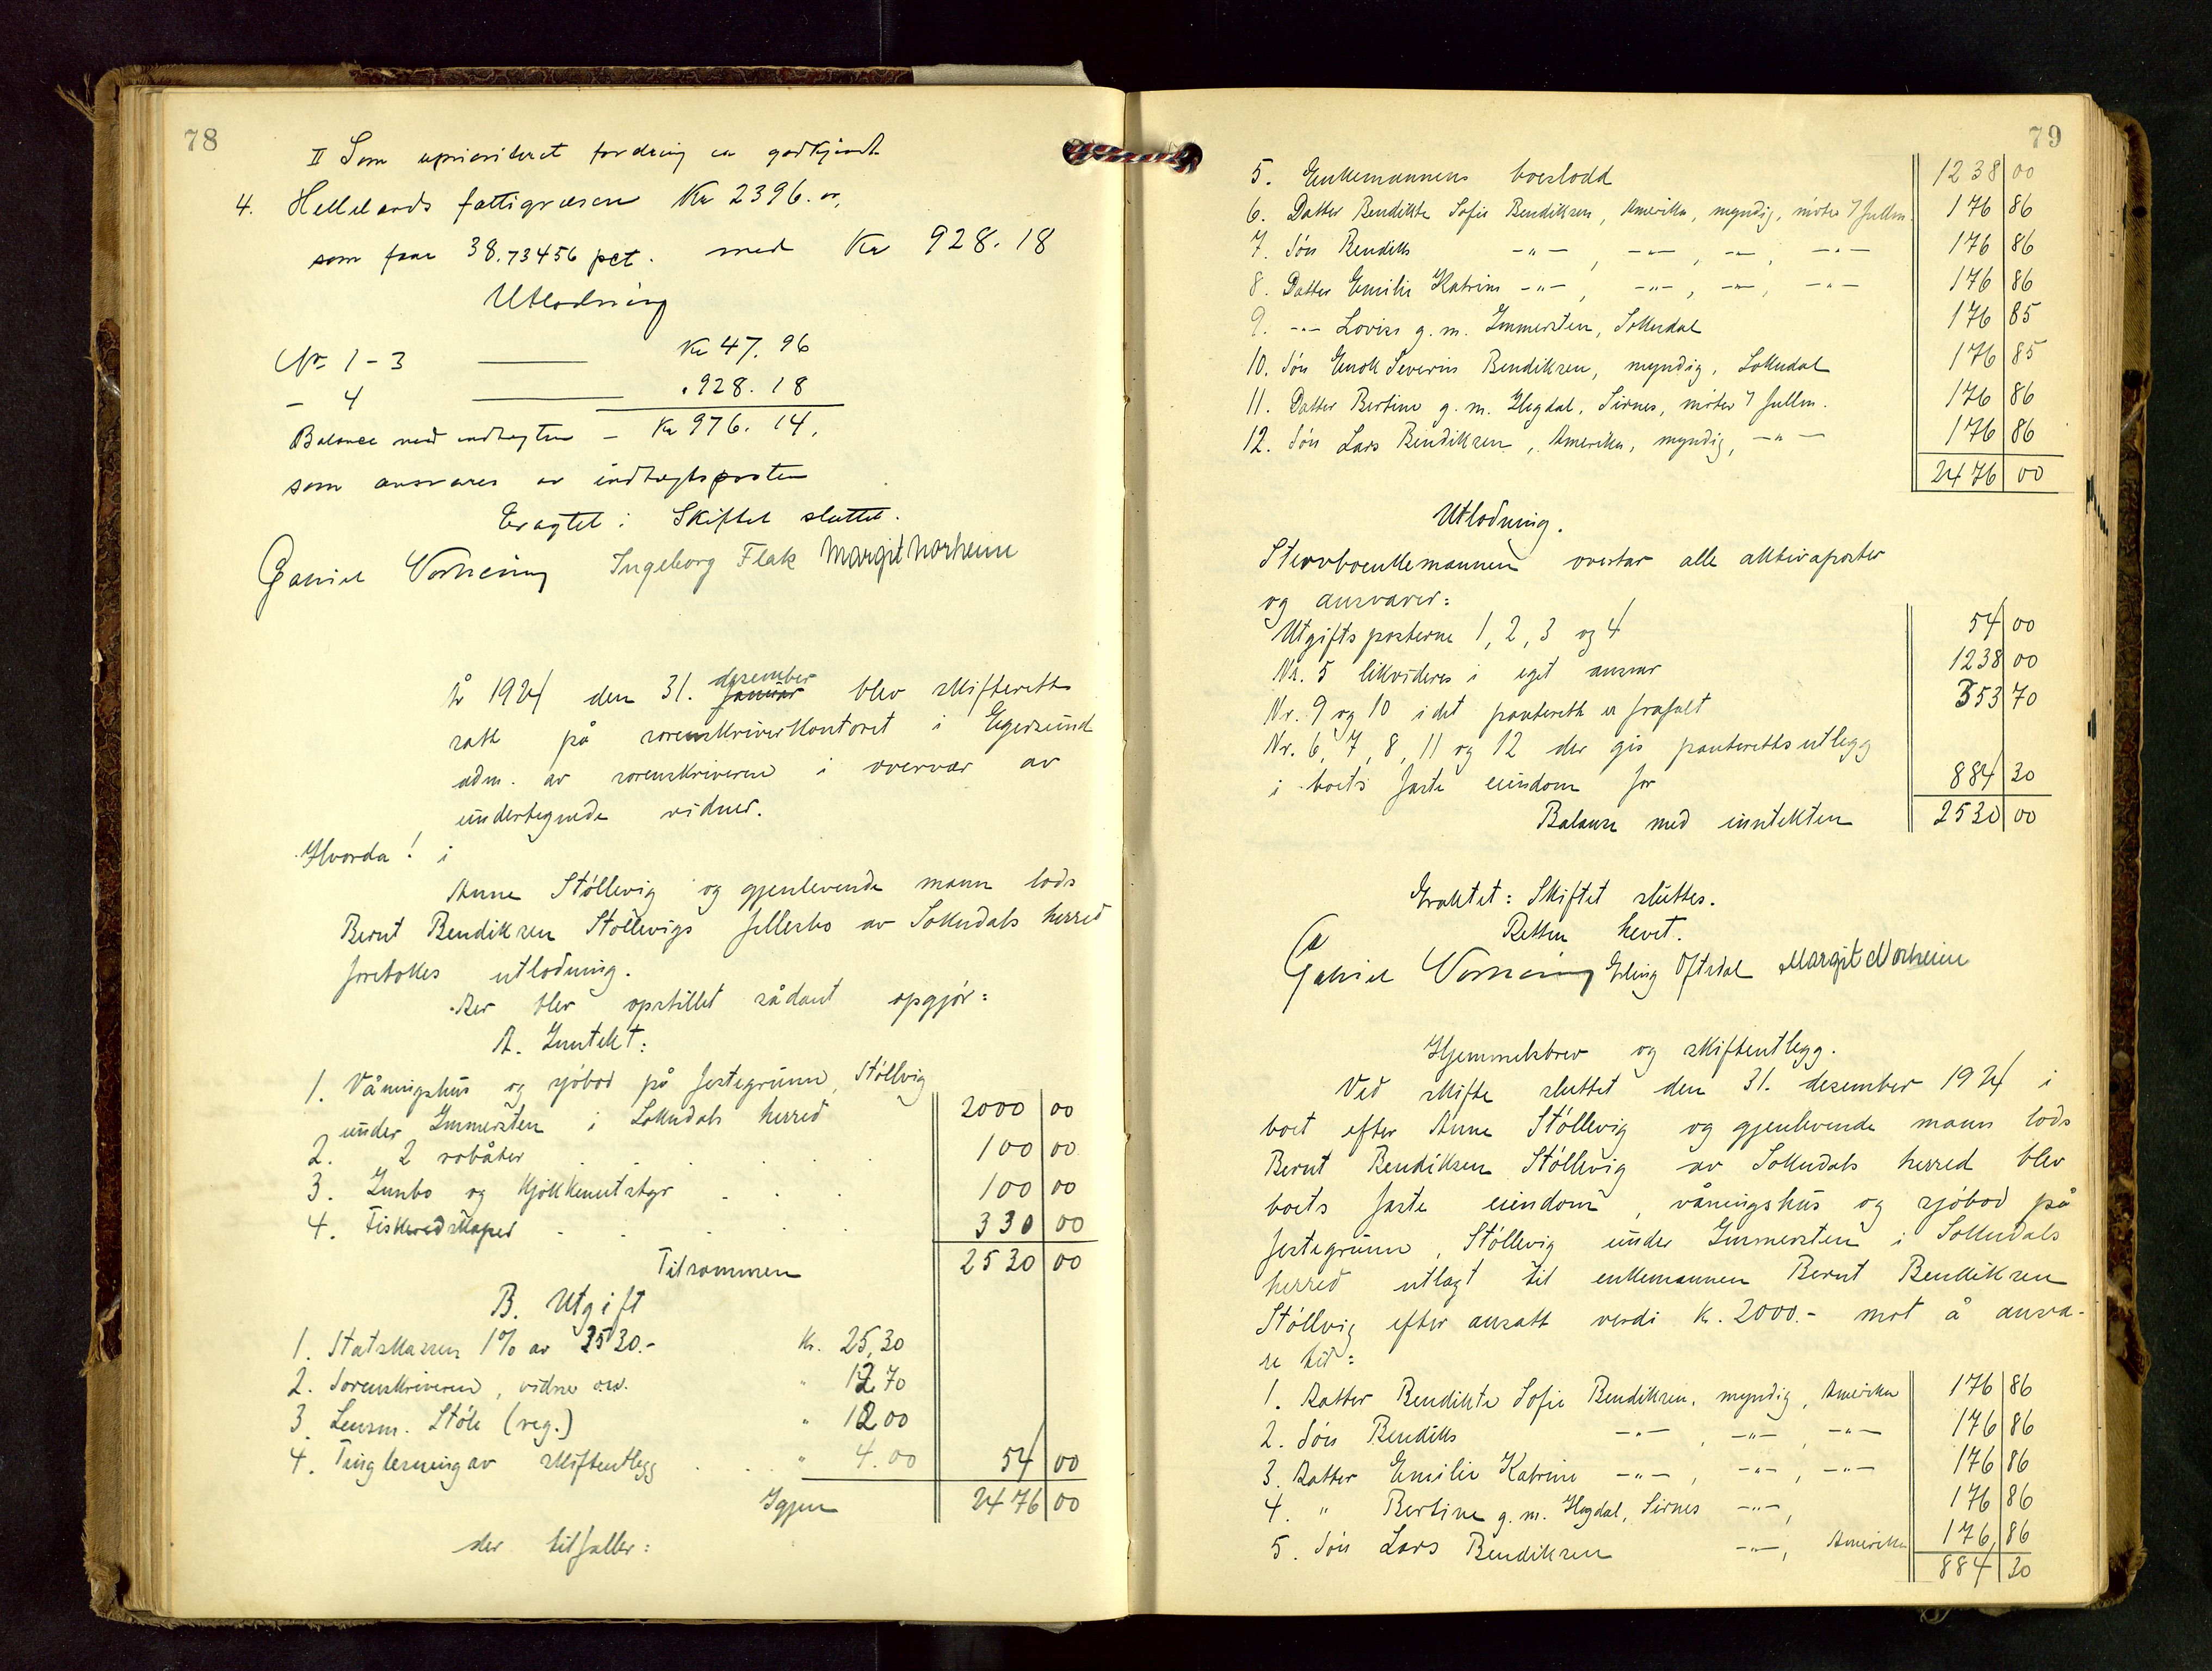 78
II Som uprioritert fordring er godkjendt
4. Hellelands fattigvæsen Kr 2396. or,
som faar 38.73456 pct. med Kr 928.18
Utlodning
Nr 1-3 Kr 47.96
- 4 " 928.18
Balance med indtægten - Kr 976.14.
som ansvares av indtægtsposten
Eragtet: Skiftet sluttet.
Ingeborg Flak Margit Norheim
År 1924 den 31. januar desember blev skifterett
satt på sorenskriverkontoret i Egersund
adm. av sorenskriveren i overvær av
undertegnede vidner.
Hvorda! i
Anne Stöllevig og gjenlevende mann lods
Bernt Bendiksen Stöllevigs fellesbo av Sokndals herred
foretokes utlodning.
Der blev opstillet sådant opgjör:
A. Inntekt:
1. Våningshus og sjöbod på festegrunn, Stöllvig
under Immersten i Sokndals herred 2000 00
2. 2 robåter . . . . 100 00
3. Innbo og kjökkenutstyr . . . 100 00
4. Fiskeredskaper . . . . 330 00
Tilsammen 2530 00
B. Utgift
1. Statskassen 1% av 2530.- Kr. 25,30
2. Sorenskriveren, vidner osv. " 12 70
3. Lensm. Stöle (reg.) " 12 00
4. Tinglesning av skifteutlegg . . . " 4.00 54 00
Igjen 2476 00
der tilfaller:
79
5. Enkemannens boeslodd 1238 00
6. Datter Bendikte Sofie Bendiksen, Amerika, myndig, möter 7 fullm. 176 86
7. Sön Bendiks -"-, -"-, -"-, -"- 176 86
8. Datter Emilie Katrine -"-, -"-, -"-, -"- 176 86
9. -"- Lovise g. m. Immersten, Sokndal 176 85
10. Sön Enok Severin Bendiksen, myndig, Sokndal 176 85
11. Datter Bertine g. m. Hegdal, Sirnes, möter 7 fullm. 176 86
12. Sön Lars Bendiksen, Amerika, myndig, -"- 176 86
2476 00
Utlodning.
Stervboenkemannen overtar alle aktivaposter
og ansvarer:
Utgiftsposterne 1, 2, 3 og 4 54 00
Nr. 5 likvideres i eget ansvar 1238 00
Nr. 9 og 10 idet panterett er frafalt 353 70
Nr. 6, 7, 8, 11 og 12 der gis panterettsutlegg
i boets faste eiendom for 884 30
Balanse med inntekten 2530 00
Eraktet: Skiftet sluttes.
Retten hevet.
Eling Oftedal Margit Norheim
Hjemmelsbrev og skifteutlegg.
Ved skifte sluttet den 31. desember 1924 i
boet efter Anne Stöllevig og gjenlevende mann lods
Bernt Bendiksen Stöllevig av Sokndals herred blev
boets faste eiendom, våningshus og sjöbod på
festegrunn, Stöllevig under Immersten i Sokndals
herred utlagt til enkemannen Bernt Bendiksen
Stöllvig efter ansatt verdi kr. 2000.- mot å ansva-
re til:
1. Datter Bendikte Sofie Bendiksen, myndig, Amerika 176 86
2. Sön Bendiks -"-, -"-, -"- 176 86
3. Datter Emilie Katrine -"-, -"-, -"- 176 86
4. " Bertine g. m. Hegdal, Sirnes -"-, 176 86
5. Sön Lars Bendiksen -"-, Amerika 176 86
884 30